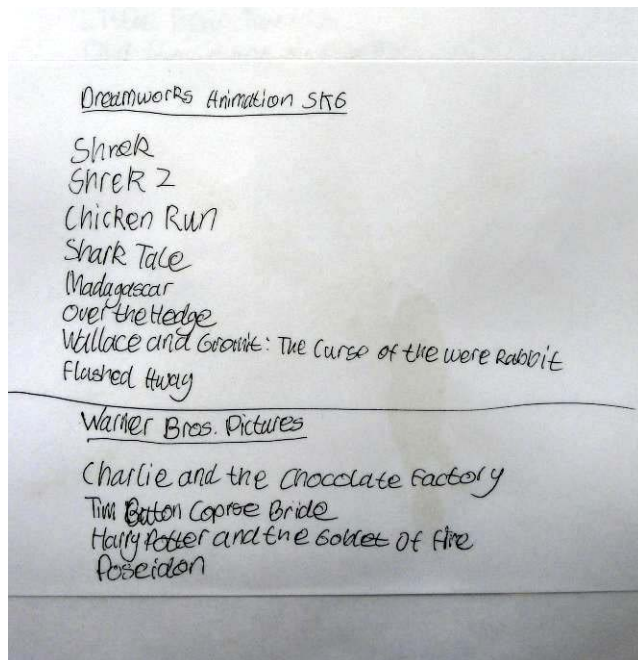 Dreamworks Animation SKG
Shrek
Shrek 2
Chicken Run
Shark Tale
Madagascar
Over the Hedge
Wallace and Gromit: The Curse of the were Rabbit
Flushed Away
Warner Bros. Pictures
Charlie and the Chocolate Factory
Tim Burton Coprse Bride
Harry Potter and the Goblet Of Fire
Poseidon